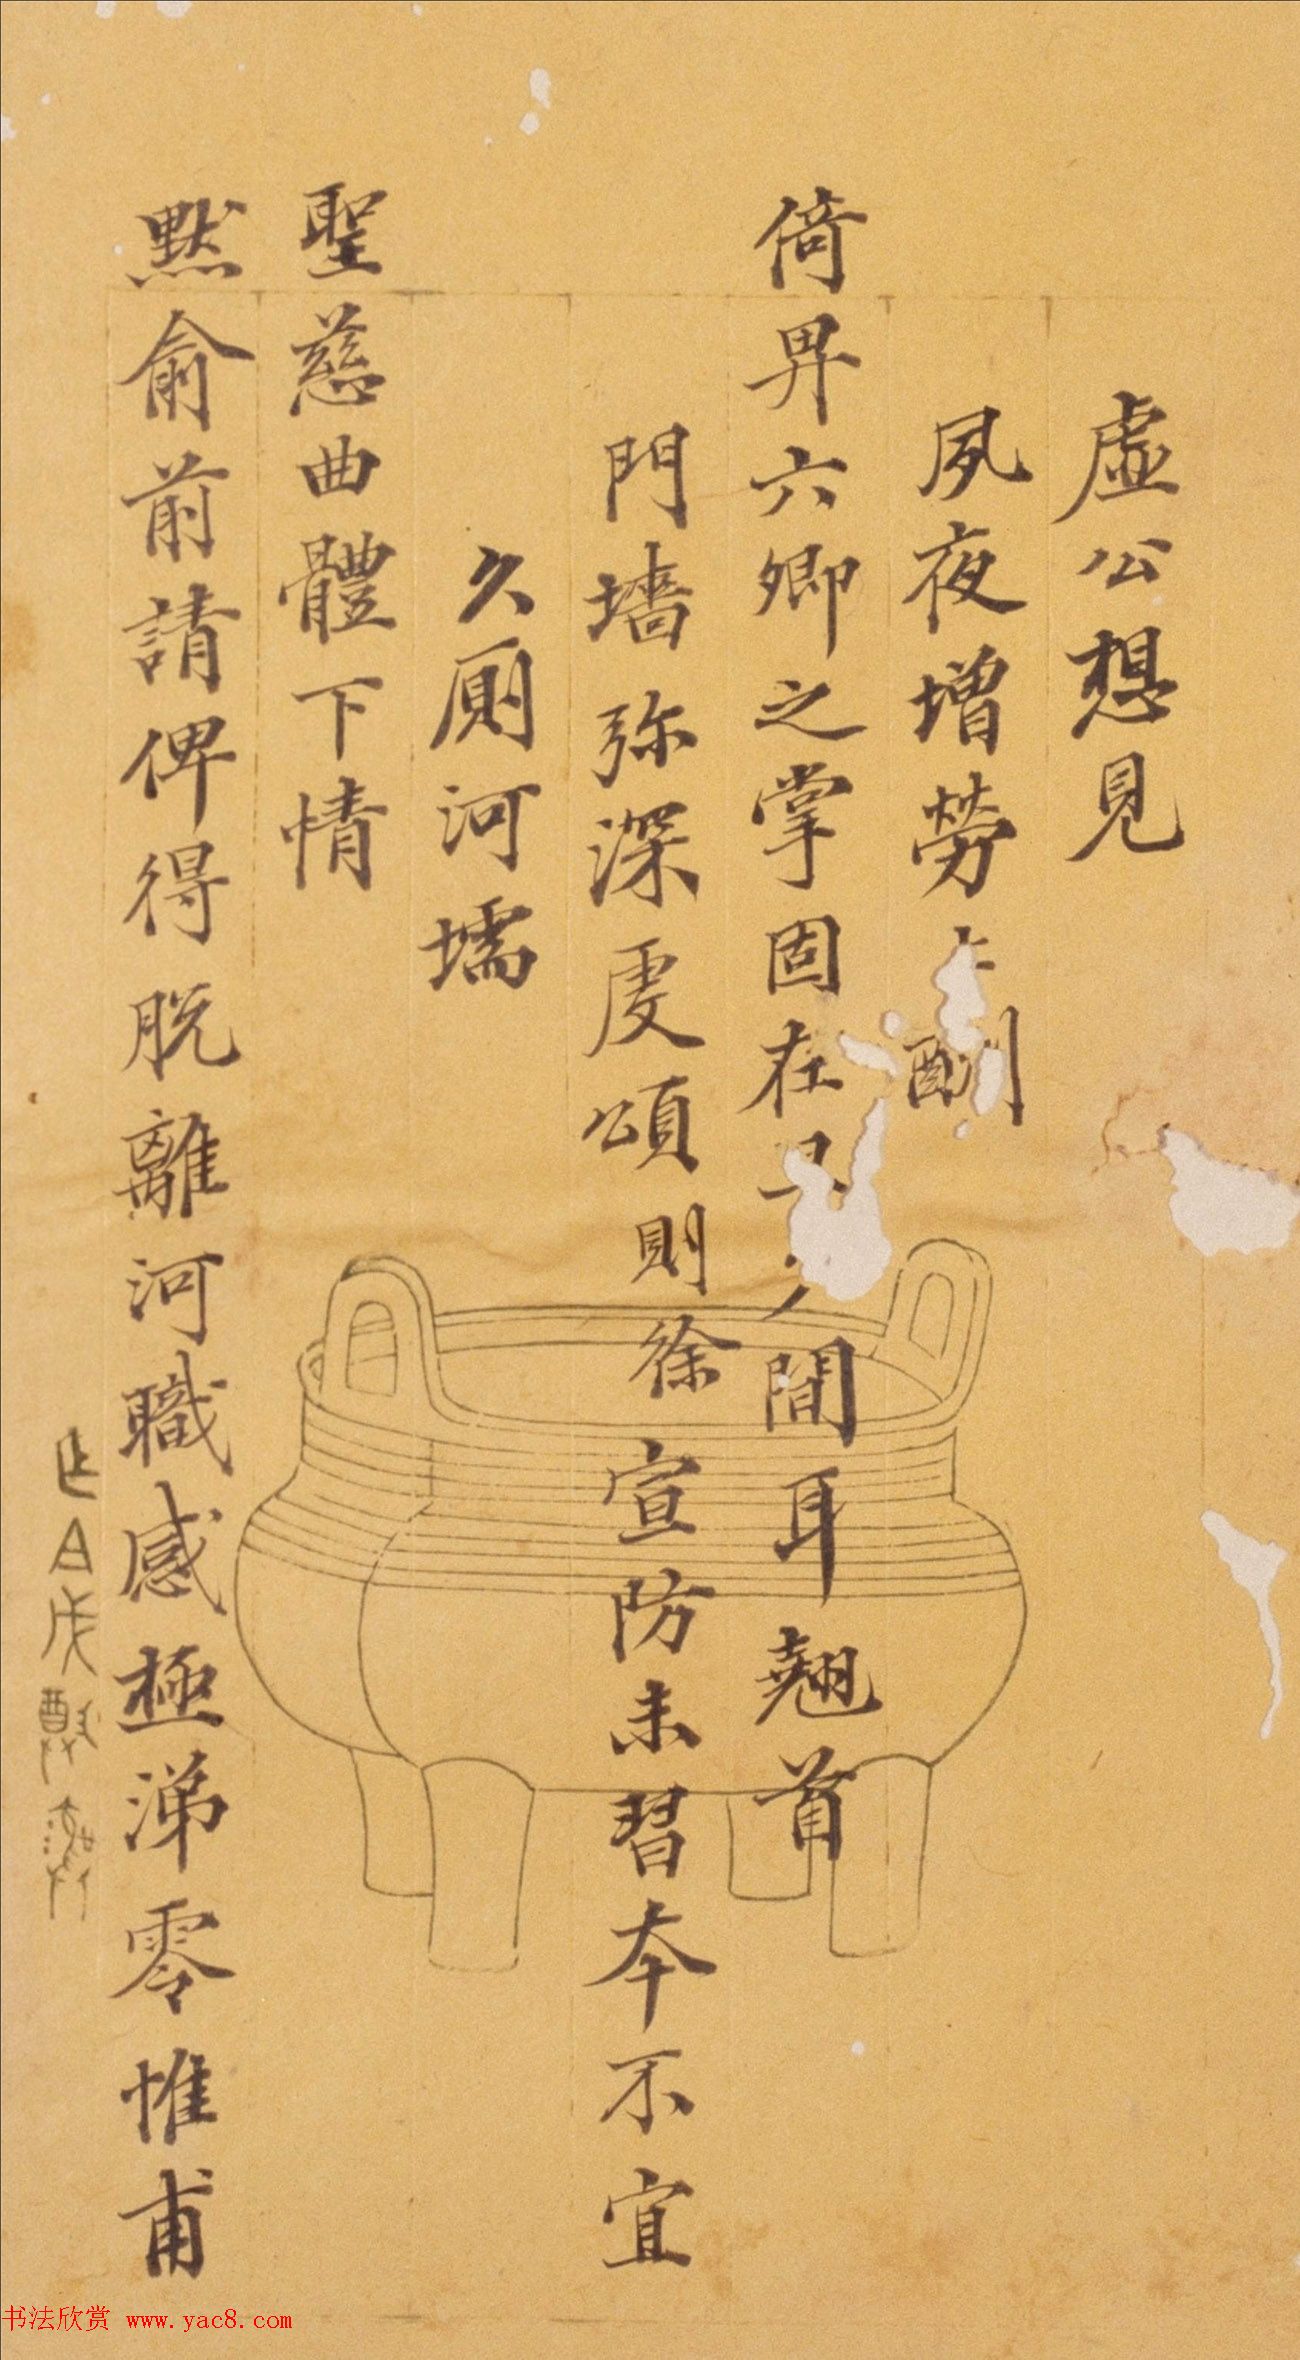 虛公想見
夙夜增勞 酬
倚畀六卿之掌固在 間耳翹首
門墻弥深虔頌則徐宣防未習本不宜
久廁河壖
聖慈曲體下情
黙俞前請俾得脫離河職感極涕零惟甫
书法欣赏 www.yac8.com